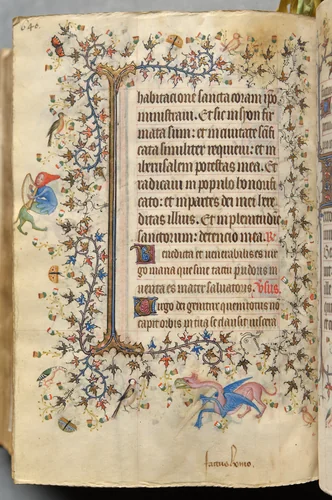 640.
habitatione sancta coram ipo
ministraui. Et sic in syon fir
mata sum: et in ciuitate scifi
cata similiter requieui: et in
iherusalem potestas mea. Et
radicaui in populo honorifi
cato: et in partes dei mei here
ditas illius. Et in plenitudie
sanctorum: detencio mea. Re
Benedicta et uenerabilis es uir
go maria que sine tactu pudoris in
uenta es mater saluatoris. Vsus.
Virgo dei genitrix quem totus nō
capit orbis in tua se clausit uiscera
factus homo.